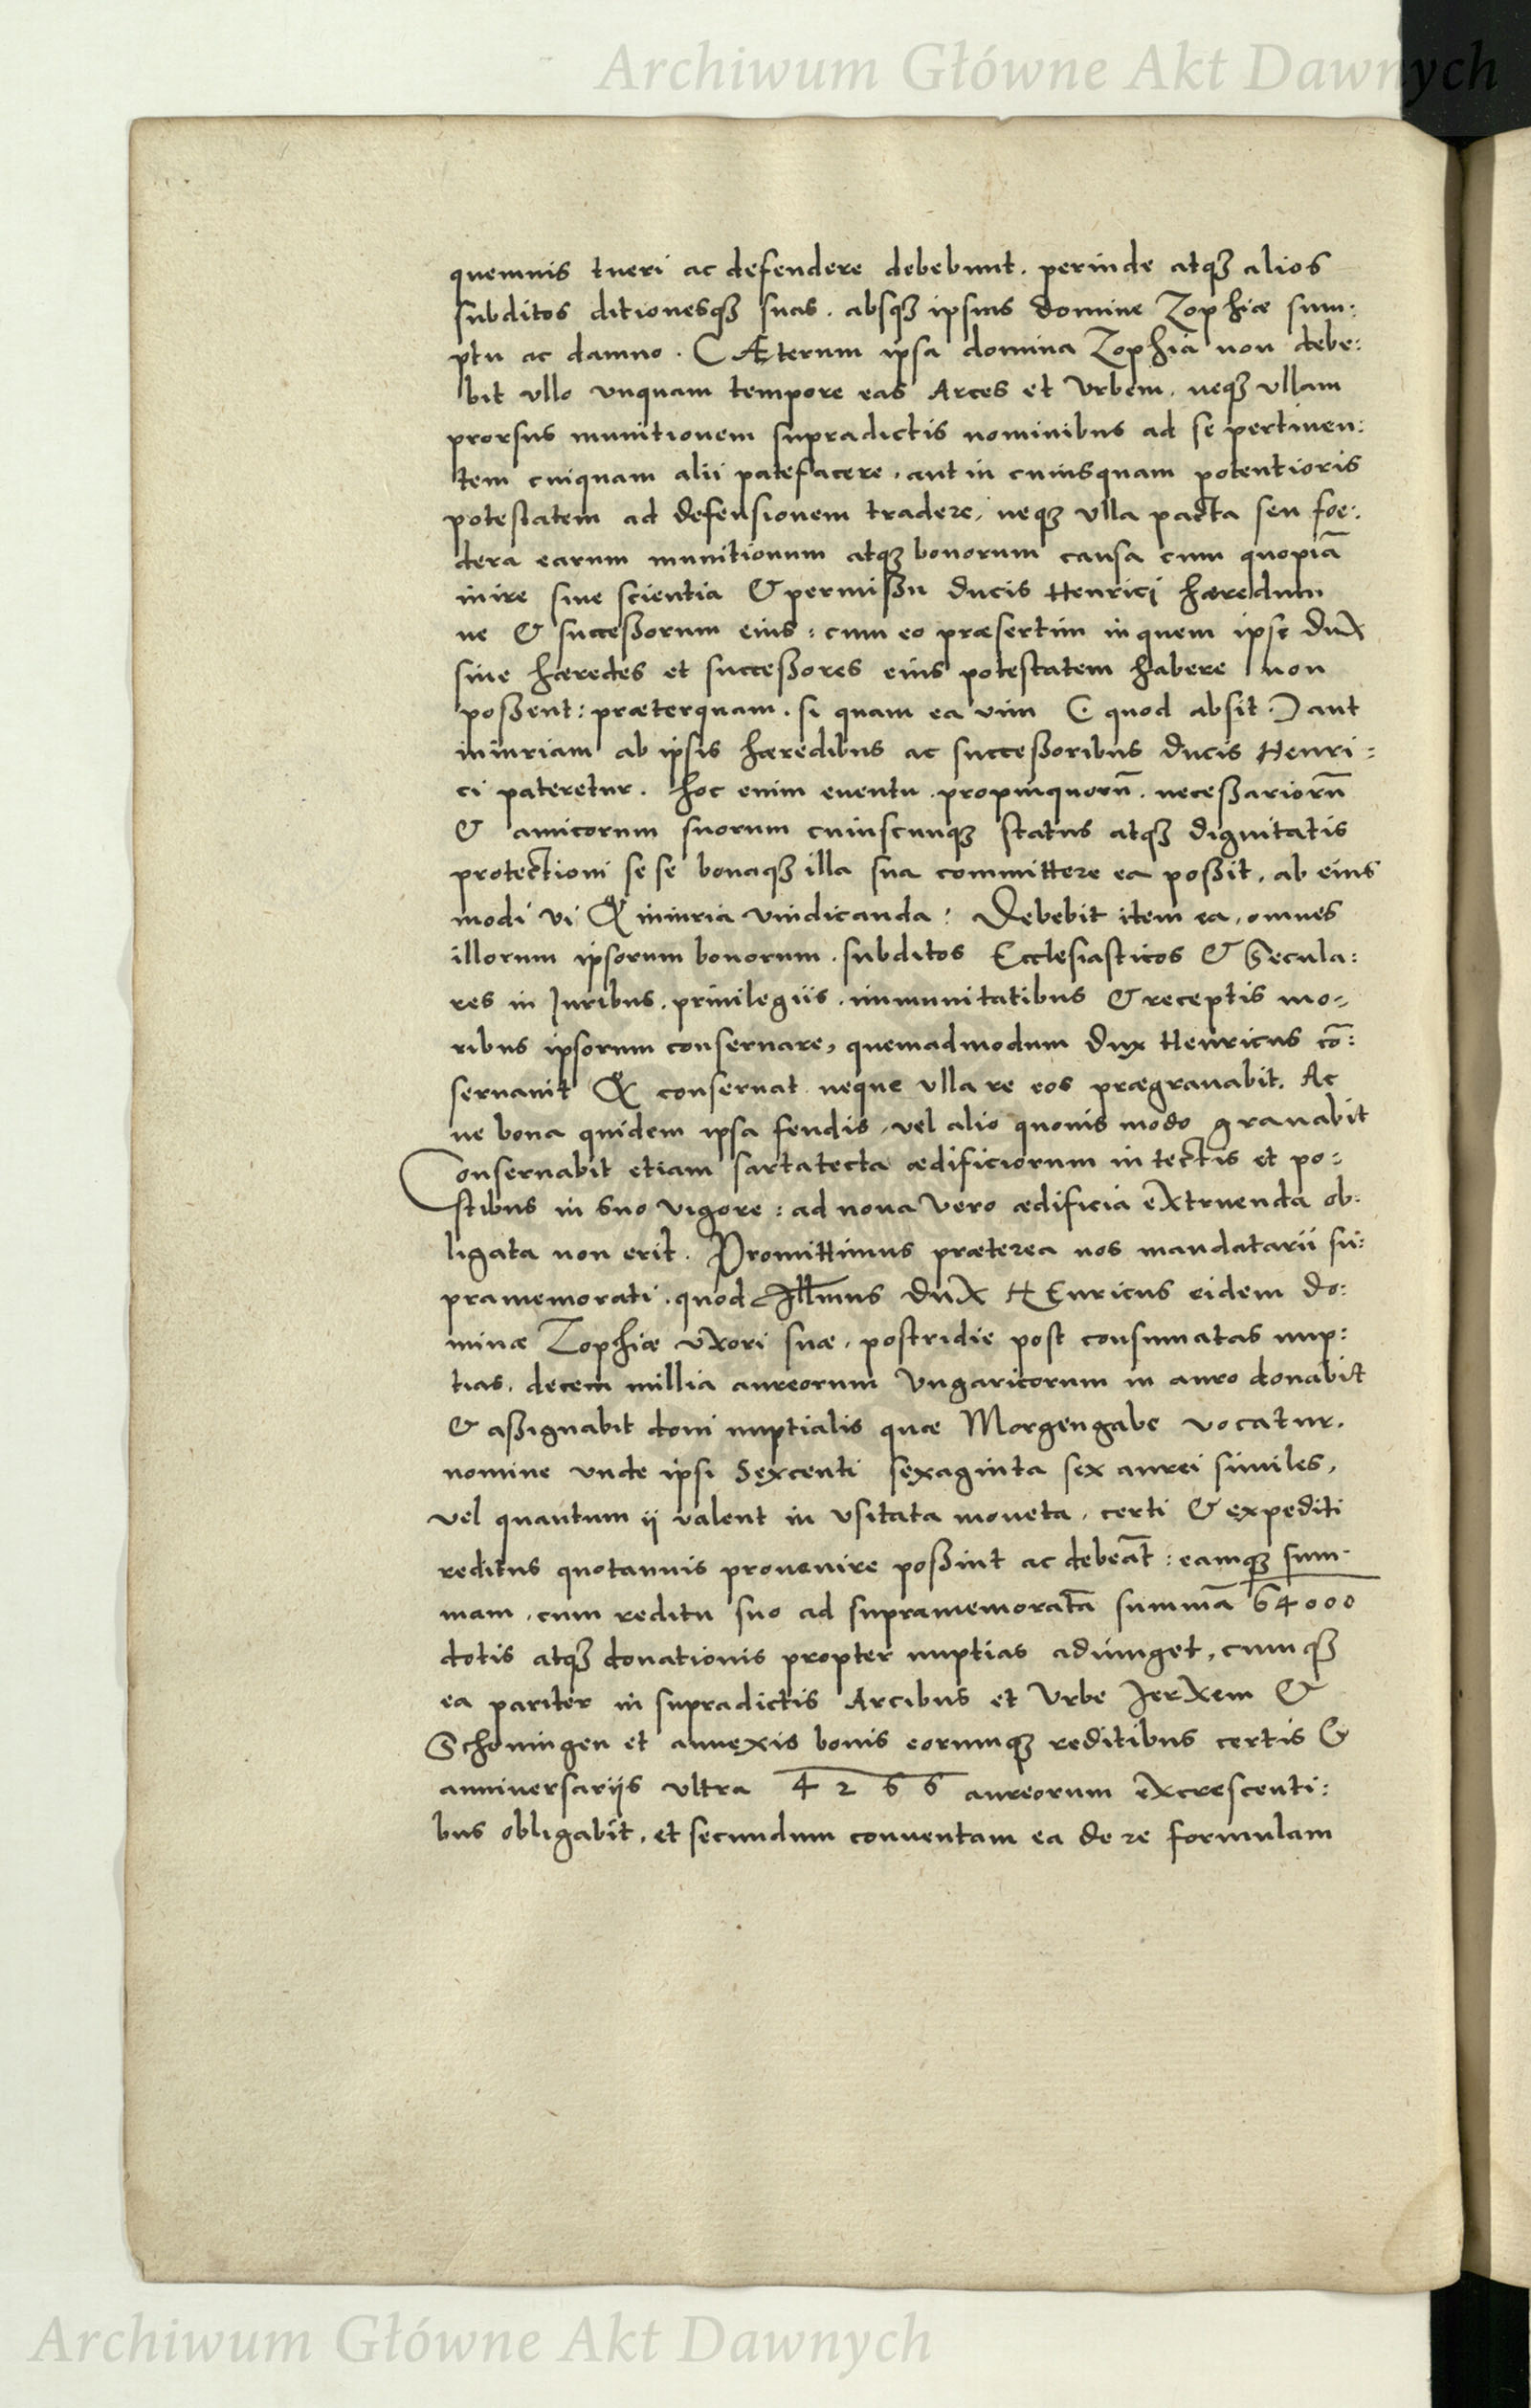 Archiwum Główne Akt Dawnych
quemuis tueri ac defendere debebunt. perinde atq3 alios
subditos ditionesq3 suas. absq3 ipsius domine Zophiæ sum:
ptu ac damno. CÆterum ipsa domina Zophia non debe:
bit vllo vnquam tempore eas Arces et Vrbem. neq3 vllam
prorsus munitionem supradictis nominibus ad se pertinen:
tem cuiquam alii patefacere. aut in cuiusquam potentioris
potestatem ad defensionem tradere. neq3 vlla pacta seu foe:
dera earum munitionum atq3 bonorum causa cum quopiā
inire sine scientia & permißu ducis Henrici hæredum
ue & succeßorum eius: cum eo præsertim in quem ipse duX
siue hæredes et succeßores eius potestatem habere non
poßent: præterquam. si quam ea vim ( quod absit ) aut
iniuriam ab ipsis hæredibus ac succeßoribus ducis Henri:
ci pateretur. hoc enim euentu. propinquorū. neceßariorū
& amicorum suorum cuiuscunq3 status atq3 dignitatis
protectioni se se bonaq3 illa sua committere ea poßit. ab eius
modi vi & iniuria vindicanda: Debebit item ea. omnes
illorum ipsorum bonorum. subditos Ecclesiasticos & Secula:
res in Iuribus. priuilegiis. immunitatibus & receptis mo:
ribus ipsorum conseruare, quemadmodum dux Henricus cō:
seruauit & conseruat neque vlla re eos prægrauabit. Ac
ne bona quidem ipsa feudis, vel alio quouis modo grauabit
Conseruabit etiam sartatecta ædificiorum in tectis et po:
stibus in suo vigore: ad noua vero ædificia eXtruenda ob:
ligata non erit. Promittimus præterea nos mandatarii su:
pramemorati. quod Illmus duX HEnricus eidem do:
minæ Zophiæ vXori suæ. postridie post consumatas nup:
tias. decem millia aureorum Vngaricorum in auro donabit
& aßignabit doni nuptialis quæ Morgengabe vocatur.
nomine vnde ipsi Sexcenti sexaginta sex aurei similes,
vel quantum ij valent in vsitata moneta. certi & expediti
reditus quotannis prouenire poßint ac debeāt: eamq3 sum:
mam. cum reditu suo ad supramemoratā summā 64000
dotis atq3 donationis propter nuptias adiunget, cumq3
ea pariter in supradictis Arcibus et Vrbe JerXem &
Schoningen et annexis bonis eorumq3 reditibus certis &
anniuersariis vltra 4266 aureorum eXcrescenti:
bus obligabit. et secundum conuentam ea de re formulam
Archiwum Główne Akt Dawnych